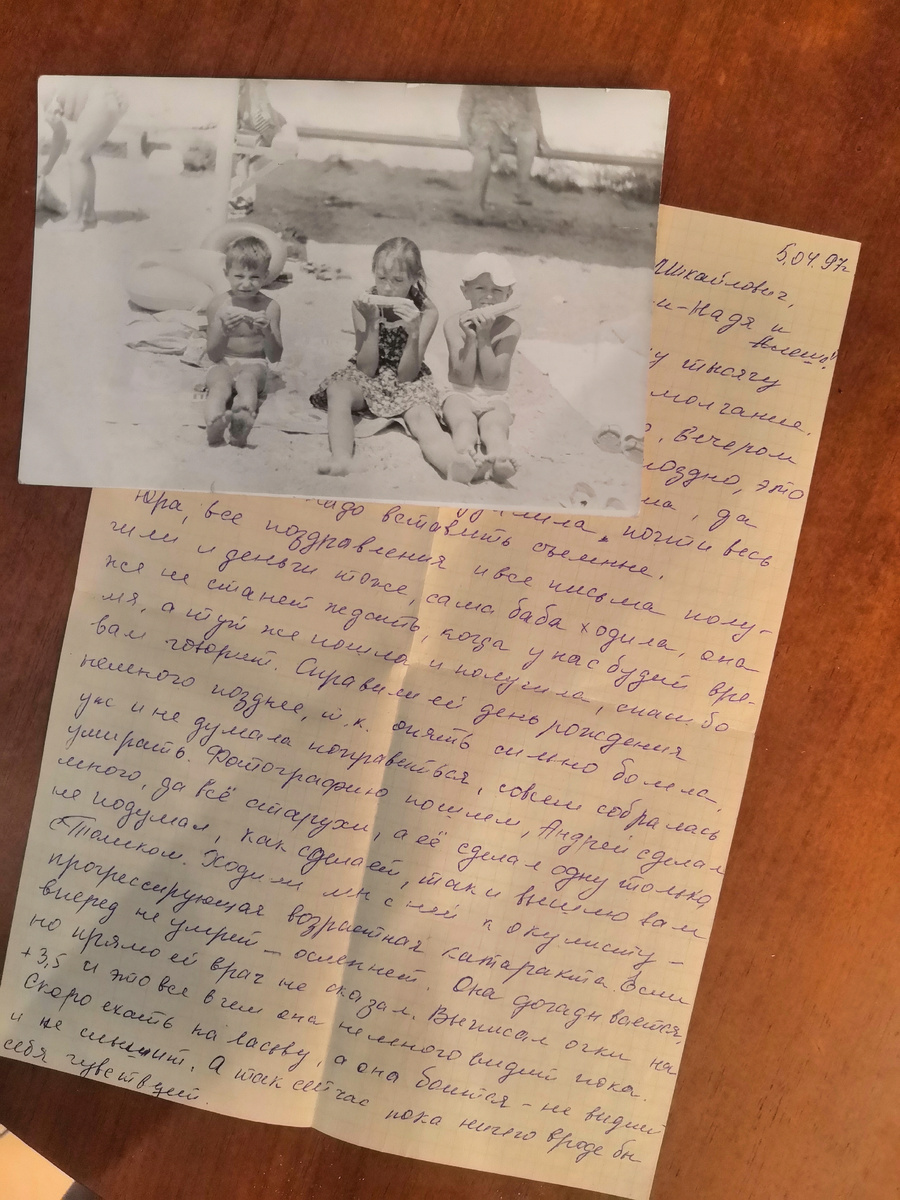 5.04.97г.
Михайлович,
и-Надя и
Алеша!
у тысячу
молчание.
, вечером
поздно, это
ма, да
почти весь
надо вставить съемные.
Юра, все поздравления и все письма полу-
чили и деньги тоже, сама баба ходила, она
же не станет ждать, когда у нас будет вре-
мя, а тут же пошла и получила, спасибо
вам говорит. Справили ей день рождения
немного позднее, т.к. опять сильно болела,
уж и не думала поправиться, совсем собралась
умирать. Фотографию пошлем, Андрей сделал
много, да всё старухи, а её сделал одну только
не подумал, как сделает, так и вышлю вам
с Толиком. Ходили мы с ней к окулисту -
прогрессирующая возрастная катаракта. Если
вперед не умрет - ослепнет. Она догадывается,
но прямо ей врач не сказал. Выписал очки на
+3,5 и это все в чем она немного видит пока.
Скоро ехать на Пасеву, а она боится - не видит
и не слышит. А так сейчас пока ничего вроде бы
себя чувствует.